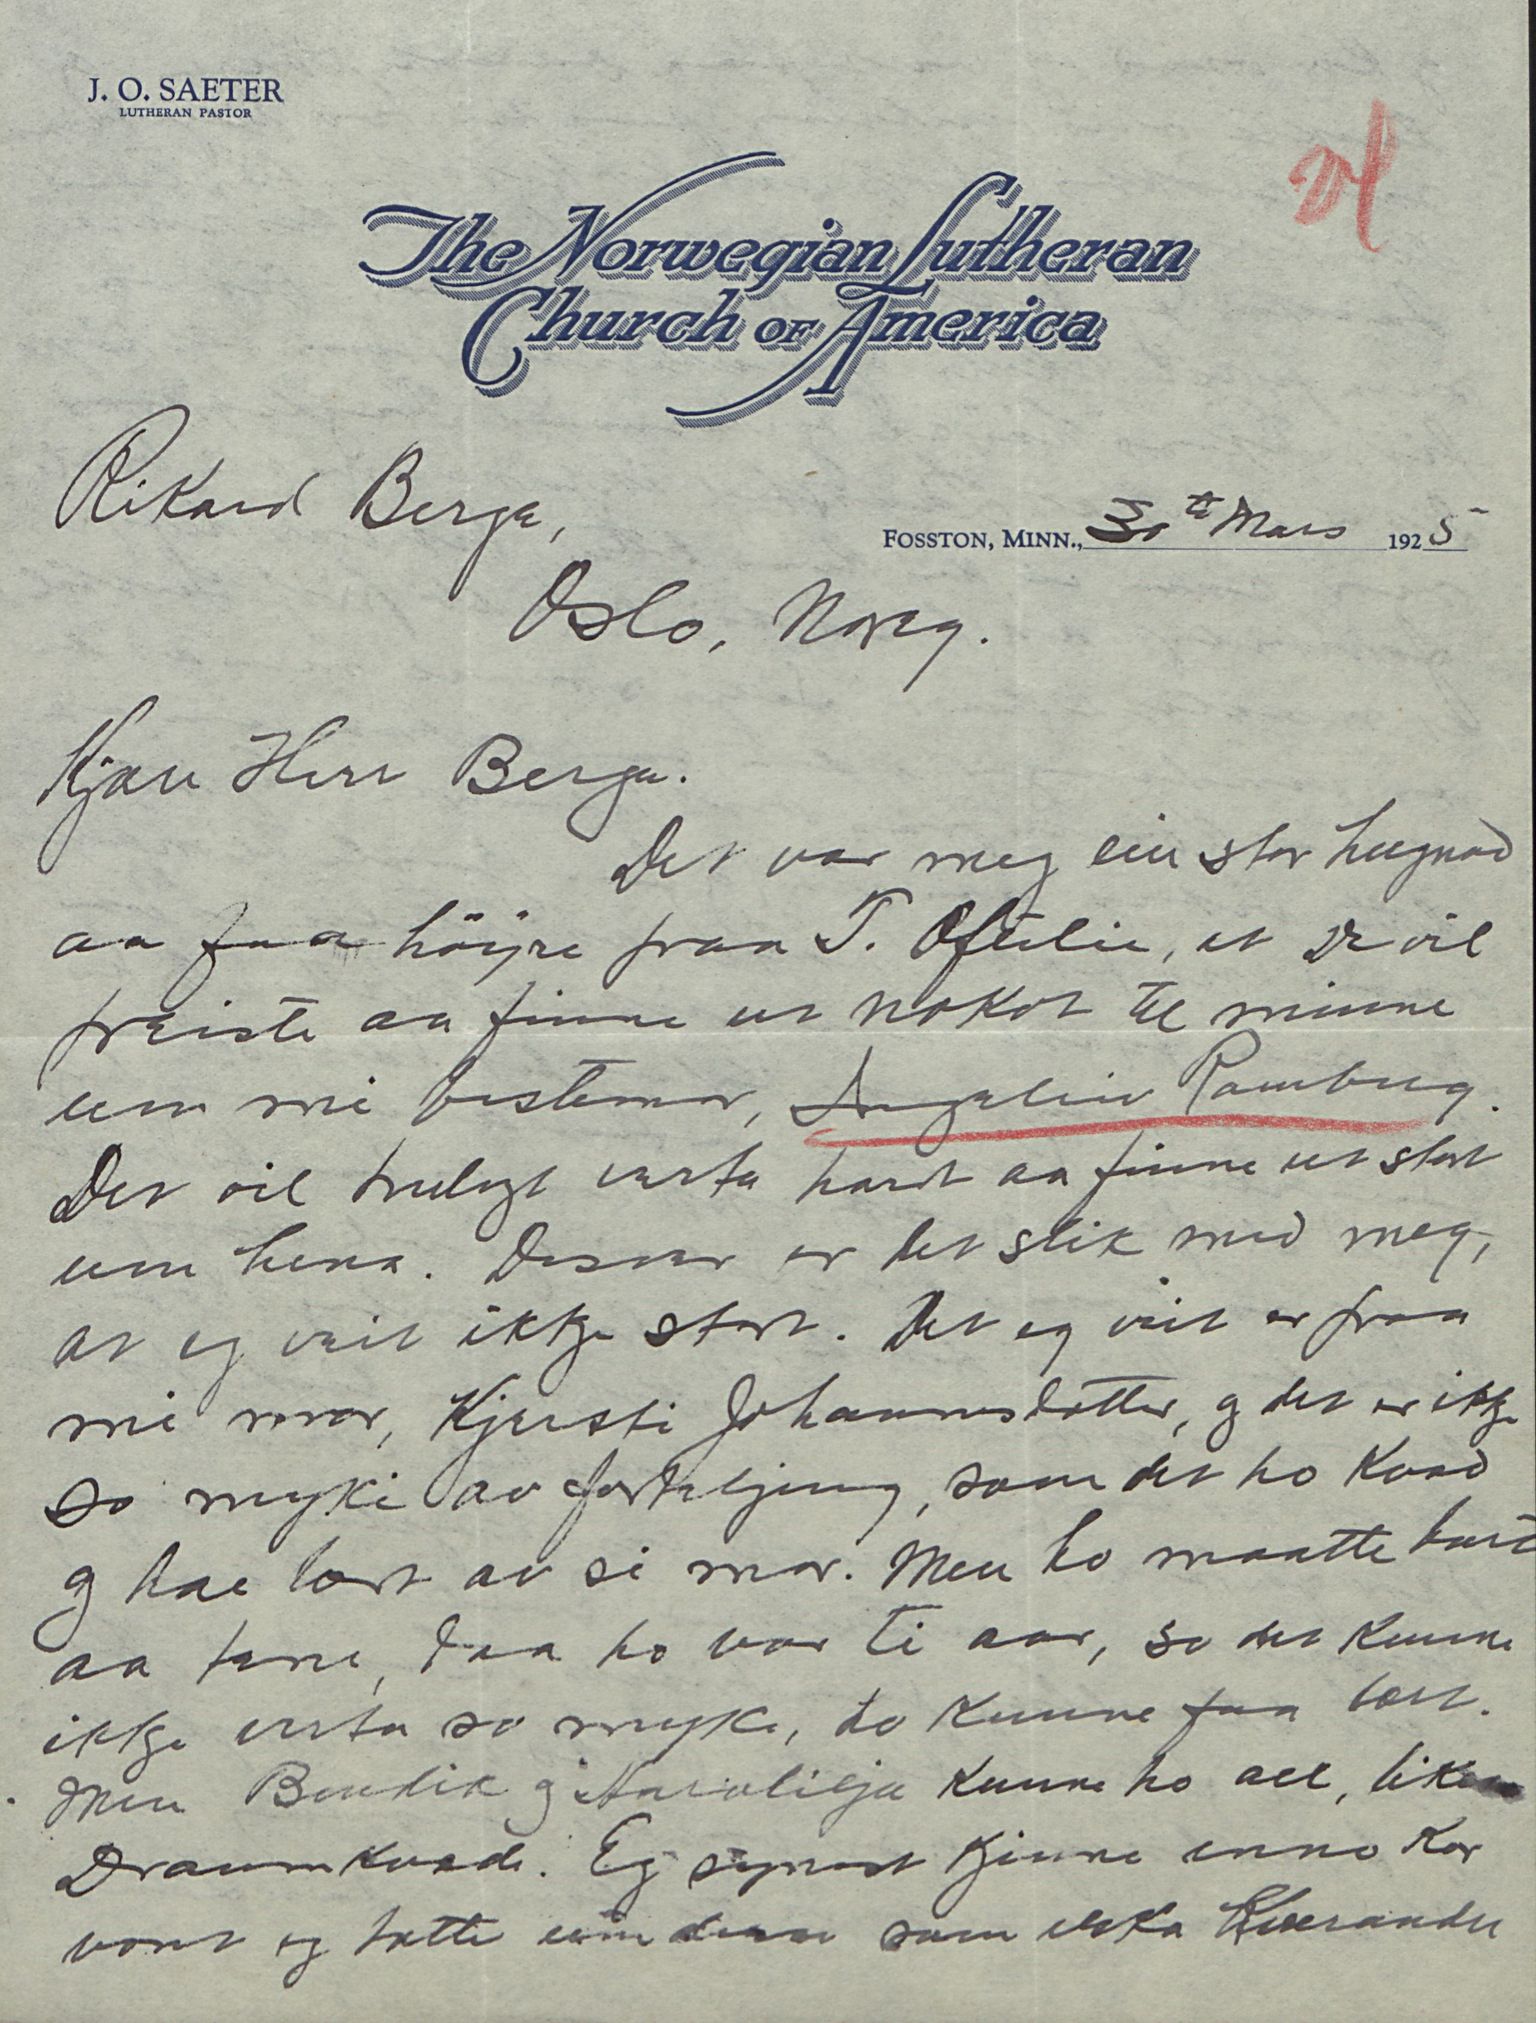 J. O. SAETER
LUTHERAN PASTOR
The Norwegian Lutheran
Church OF America
Rikard Berge,
FOSSTON, MINN., 30th Mars 1925
Oslo, Noreg.
Kjære Herr Berge.
Det var meg ein stor hugnad
aa faa höyre fraa T. Oftelie, at De vil
freiste aa finne ut nokot til minne
um mi bestemor, Angelius Ramberg.
Det vil trulegt verta hardt aa finne ut stort
um hena. Desver er det slik med meg,
at eg veit ikkje stort. Det eg veit er fraa
mi mor, Kjersti Johannesdotter, og det er ikkje
so mykje av forteljing, som det ho kvad
og hae lært av si mor. Men ho maatte burt
aa tene, daa ho var ti aar, so det kunne
ikkje verta so mykje, ho kunne faa lært.
Men Bendik og Aarolilja kunne ho all, like
Draumkvæde. Eg synest kjenne enno kor
vont eg totte um som elska kvarandre